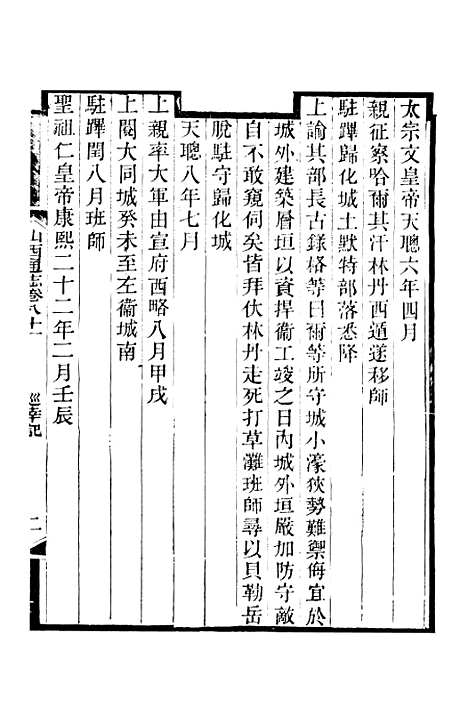 太宗文皇帝天聰六年四月
親征察哈爾其汗林丹西遁遂移師
駐蹕歸化城土默特部落悉降
上諭其部長古錄格等曰爾等所守城小濠狹勢難禦侮宜於
城外建築層垣以資捍衞工竣之日內城外垣嚴加防守敵
自不敢窺伺矣皆拜伏林丹走死打草灘班師尋以貝勒岳
脫駐守歸化城
天聰八年七月
上親率大軍由宣府西略八月甲戌
上閱大同城癸未至左衞城南
駐蹕閏八月班師
聖祖仁皇帝康熙二十二年二月壬辰
山西通志卷八十一 巡幸記 二